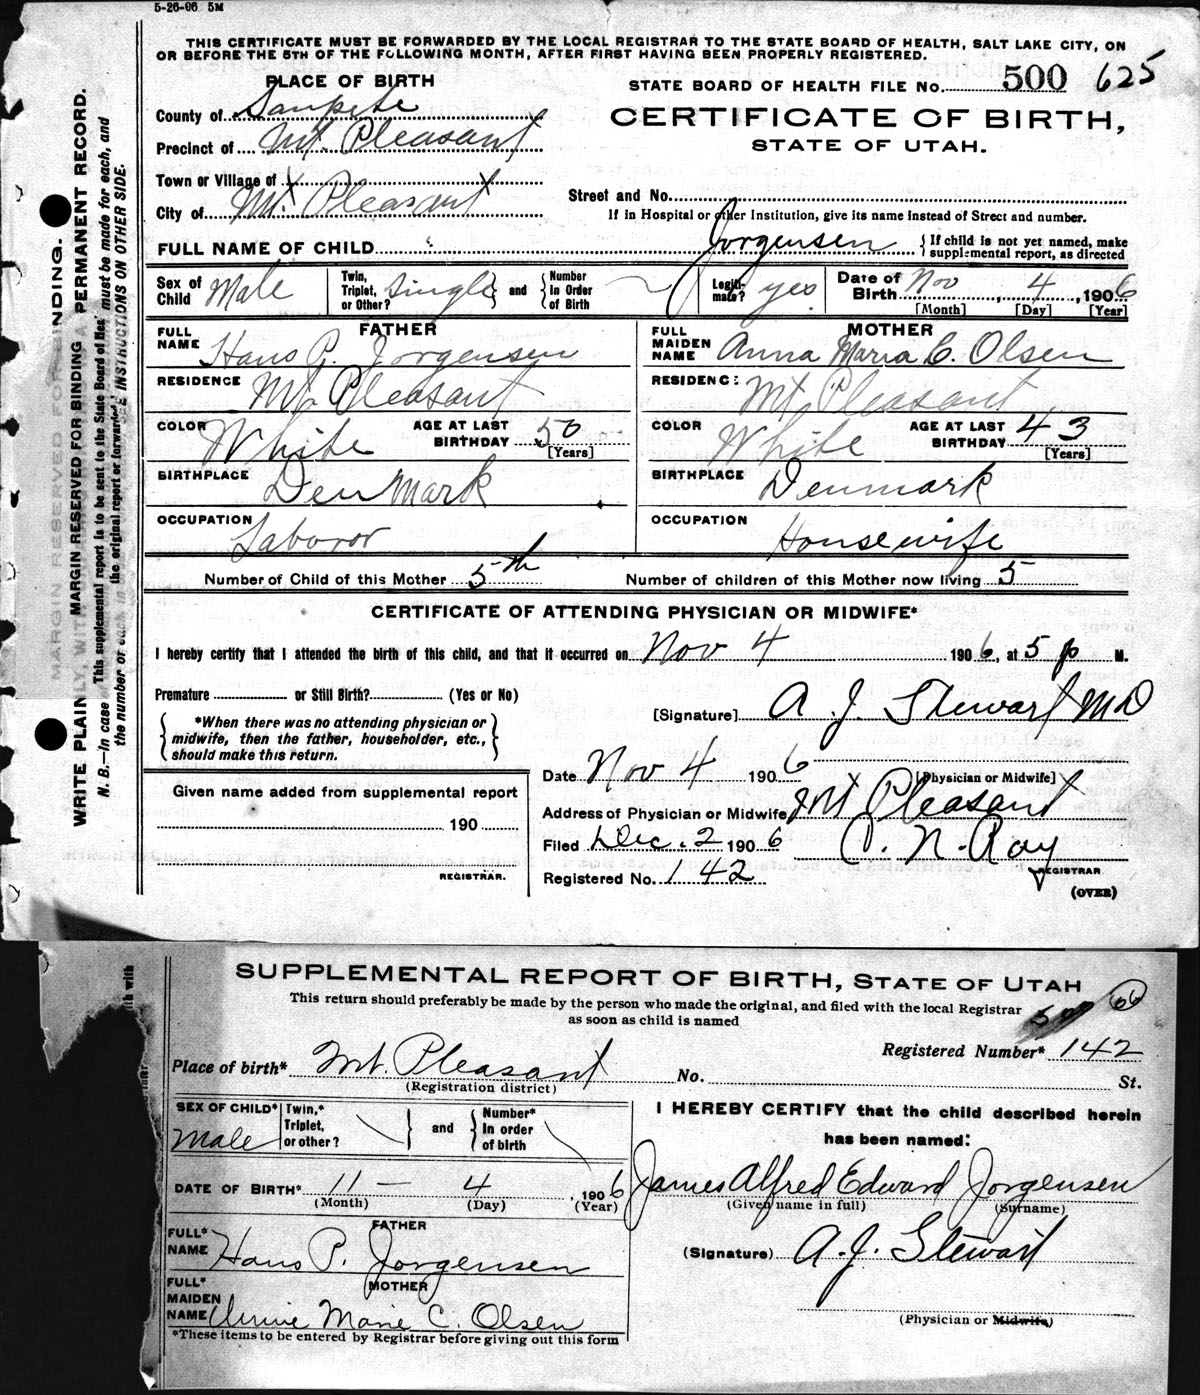 5-26-06 5M
THIS CERTIFICATE MUST BE FORWARDED BY THE LOCAL REGISTRAR TO THE STATE BOARD OF HEALTH, SALT LAKE CITY, ON
OR BEFORE THE 5TH OF THE FOLLOWING MONTH, AFTER FIRST HAVING BEEN PROPERLY REGISTERED.
PLACE OF BIRTH
STATE BOARD OF HEALTH FILE No. 500 625
County of Sanpete
CERTIFICATE OF BIRTH,
Precinct of Mt. Pleasant
STATE OF UTAH.
Town or Village of
Street and No.
City of Mt. Pleasant
If in Hospital or other Institution, give its name instead of Street and number.
FULL NAME OF CHILD Jorgensen { If child is not yet named, make supplemental report, as directed
Sex of Child Male
Twin, Triplet, or Other? Single } and { Number In Order of Birth
Legiti-mate? yes
Date of Birth Nov 4, 1906
[Month] [Day] [Year]
FATHER
MOTHER
FULL NAME Hans P. Jorgensen
FULL MAIDEN NAME Anna Maria C. Olsen
RESIDENCE Mt Pleasant
RESIDENCE Mt Pleasant
COLOR White AGE AT LAST BIRTHDAY 50 [Years]
COLOR White AGE AT LAST BIRTHDAY 43 [Years]
BIRTHPLACE DenMark
BIRTHPLACE Denmark
OCCUPATION Laboror
OCCUPATION Housewife
Number of Child of this Mother 5th
Number of children of this Mother now living 5
CERTIFICATE OF ATTENDING PHYSICIAN OR MIDWIFE*
I hereby certify that I attended the birth of this child, and that it occurred on Nov 4 1906, at 5 p M.
Premature or Still Birth? (Yes or No)
[Signature] A. J. Stewart MD
*When there was no attending physician or
midwife, then the father, householder, etc.,
should make this return.
Date Nov 4 1906
[Physician or Midwife]
Given name added from supplemental report
Address of Physician or Midwife Mt Pleasant
190
Filed Dec. 2 1906 C. N. Ray
REGISTRAR.
REGISTRAR
Registered No. 142
(OVER)
MARGIN RESERVED FOR BINDING.
WRITE PLAINLY, WITH MARGIN RESERVED FOR BINDING A PERMANENT RECORD.
N. B.—In case This supplemental report is to be sent to the State Board of Hea must be made for each, and
the number or each, in the original report or forwarded SEE INSTRUCTIONS ON OTHER SIDE.
SUPPLEMENTAL REPORT OF BIRTH, STATE OF UTAH
This return should preferably be made by the person who made the original, and filed with the local Registrar
as soon as child is named
Registered Number* 142
Place of birth* Mt. Pleasant No. St.
(Registration district)
SEX OF CHILD* Male
Twin,* Triplet, or other? } and { Number* In order of birth
I HEREBY CERTIFY that the child described herein
has been named:
DATE OF BIRTH* 11 — 4, 1906
(Month) (Day) (Year)
James Alfred Edward Jorgensen
(Given name in full) (Surname)
FATHER
FULL* NAME Hans P. Jorgensen
(Signature) A. J. Stewart
MOTHER
FULL* MAIDEN NAME Annie Marie C. Olsen
(Physician or Midwife)
*These items to be entered by Registrar before giving out this form